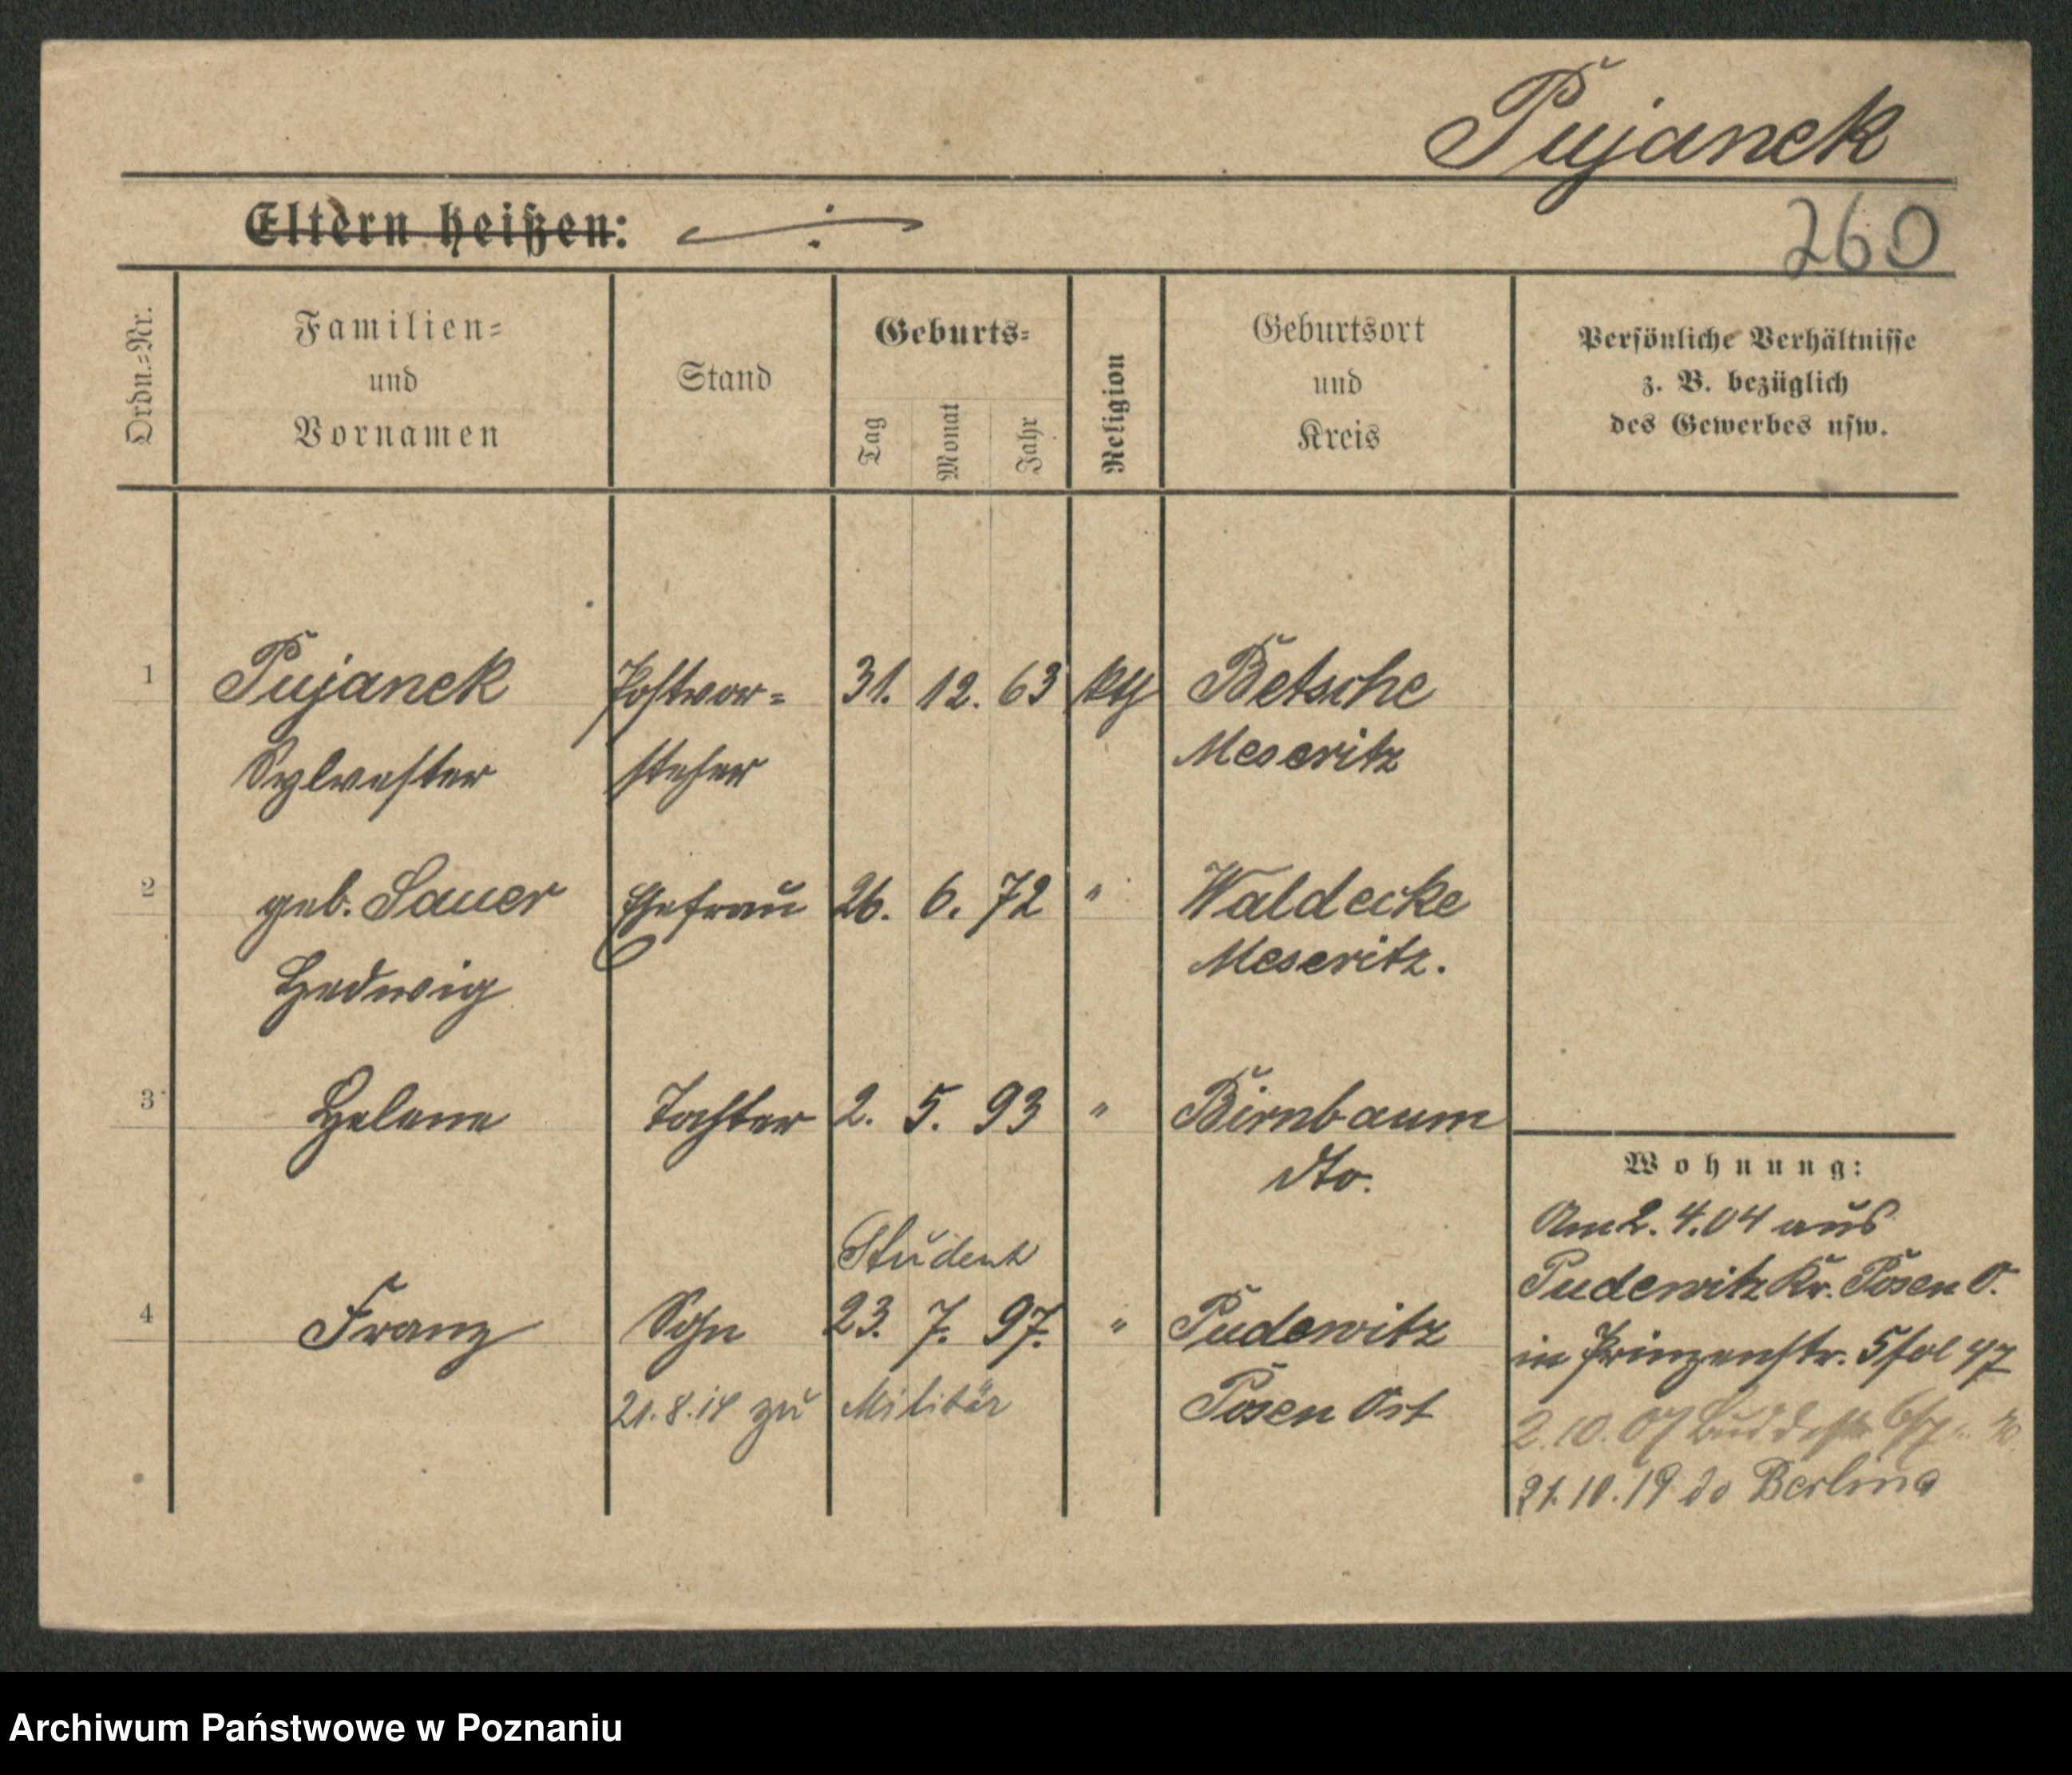 Pujanek
260
Eltern heißen: ÷
Ordn.=Nr.
Familien=
und
Vornamen
Stand
Geburts=
Tag
Monat
Jahr
Religion
Geburtsort
und
Kreis
Persönliche Verhältnisse
z. B. bezüglich
des Gewerbes usw.
1 Pujanek Postvor= 31. 12. 63 kth Betsche
Sylvester steher Meseritz
2 geb. Sauer Ehefrau 26. 6. 72 " Waldecke
Hedwig Meseritz.
3 Helene Tochter 2. 5. 93 " Birnbaum
dto.
Student
4 Franz Sohn 23. 7. 97. " Pudewitz
21.8.18 zu Militär Posen Ost
Wohnung:
Am 2. 4. 04 aus
Pudewitz Kr. Posen O.
in Prinzenstr. 5 fol 47
2.10.07
21.10.19 do Berlina
Archiwum Państwowe w Poznaniu